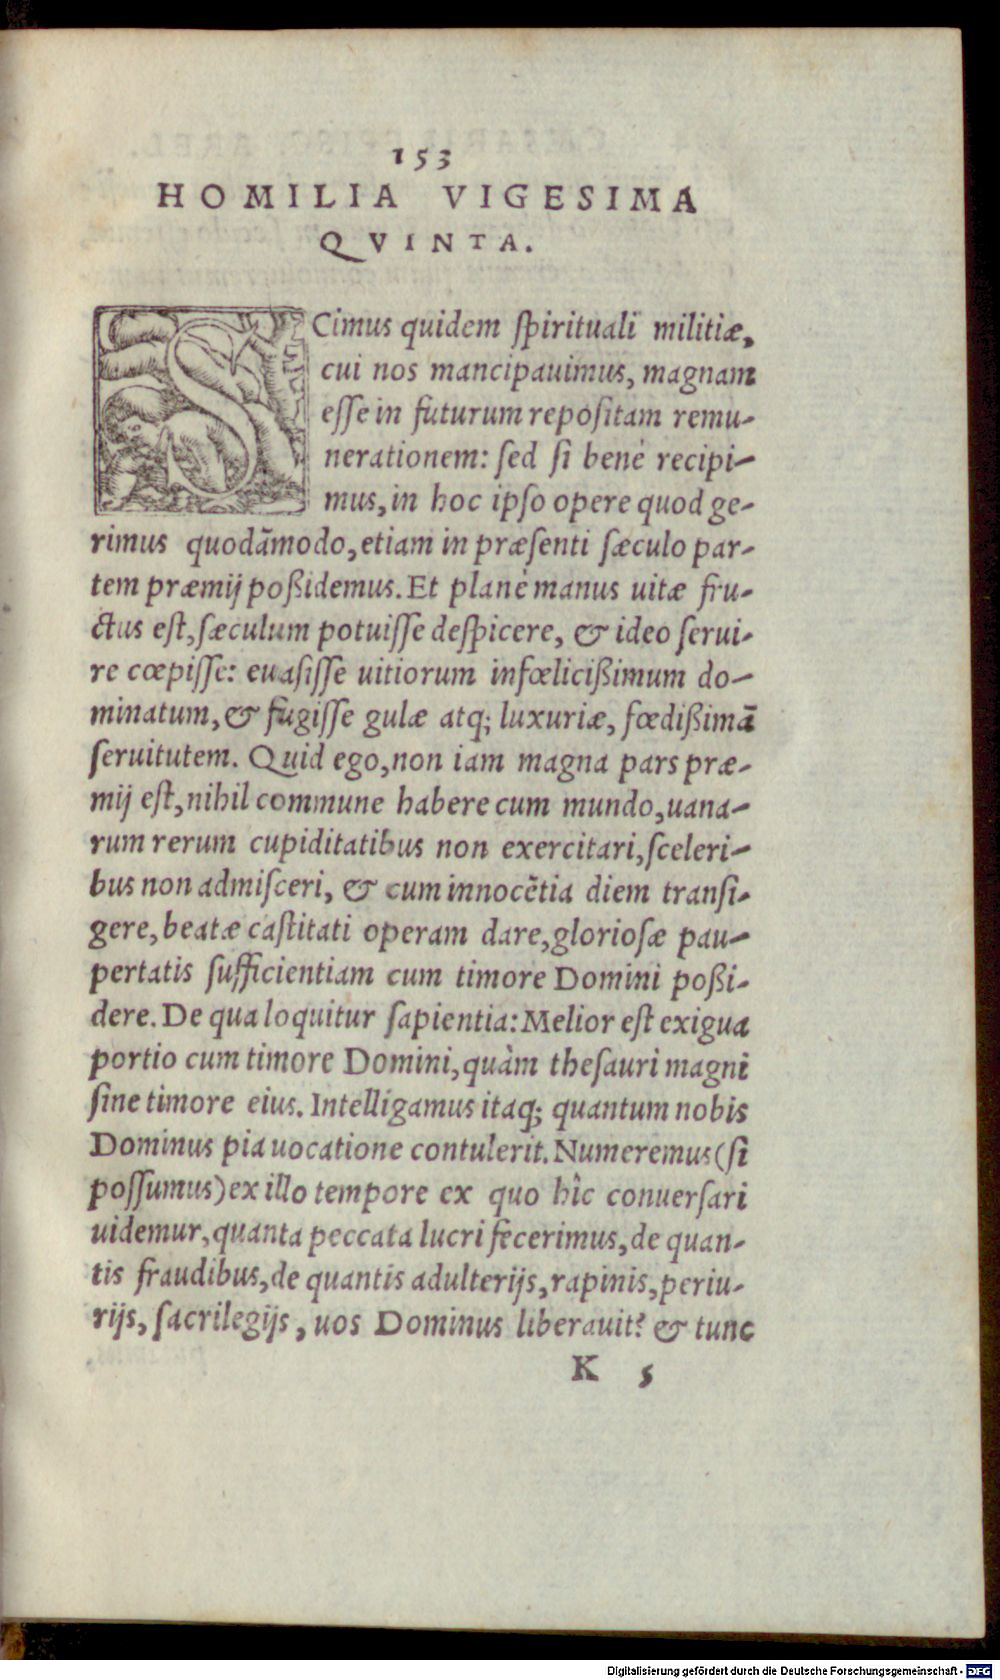 153
HOMILIA VIGESIMA
QVINTA.
SCimus quidem spirituali militiæ,
cui nos mancipauimus, magnam
esse in futurum repositam remu-
nerationem: sed si benè recipi-
mus, in hoc ipso opere quod ge-
rimus quodãmodo, etiam in præsenti sæculo par-
tem præmij poßidemus. Et planè manus uitæ fru-
ctus est, sæculum potuisse despicere, & ideo serui-
re cœpisse: euasisse uitiorum infœlicißimum do-
minatum, & fugisse gulæ atq; luxuriæ, fœdißimã
seruitutem. Quid ego, non iam magna pars præ-
mij est, nihil commune habere cum mundo, uana-
rum rerum cupiditatibus non exercitari, sceleri-
bus non admisceri, & cum innocẽtia diem transi-
gere, beatæ castitati operam dare, gloriosæ pau-
pertatis sufficientiam cum timore Domini poßi-
dere. De qua loquitur sapientia: Melior est exigua
portio cum timore Domini, quàm thesauri magni
sine timore eius. Intelligamus itaq; quantum nobis
Dominus pia uocatione contulerit. Numeremus (si
possumus) ex illo tempore ex quo hîc conuersari
uidemur, quanta peccata lucri fecerimus, de quan-
tis fraudibus, de quantis adulterijs, rapinis, periu-
rijs, sacrilegijs, uos Dominus liberauit? & tunc
K 5
Digitalisierung gefördert durch die Deutsche Forschungsgemeinschaft - DFG